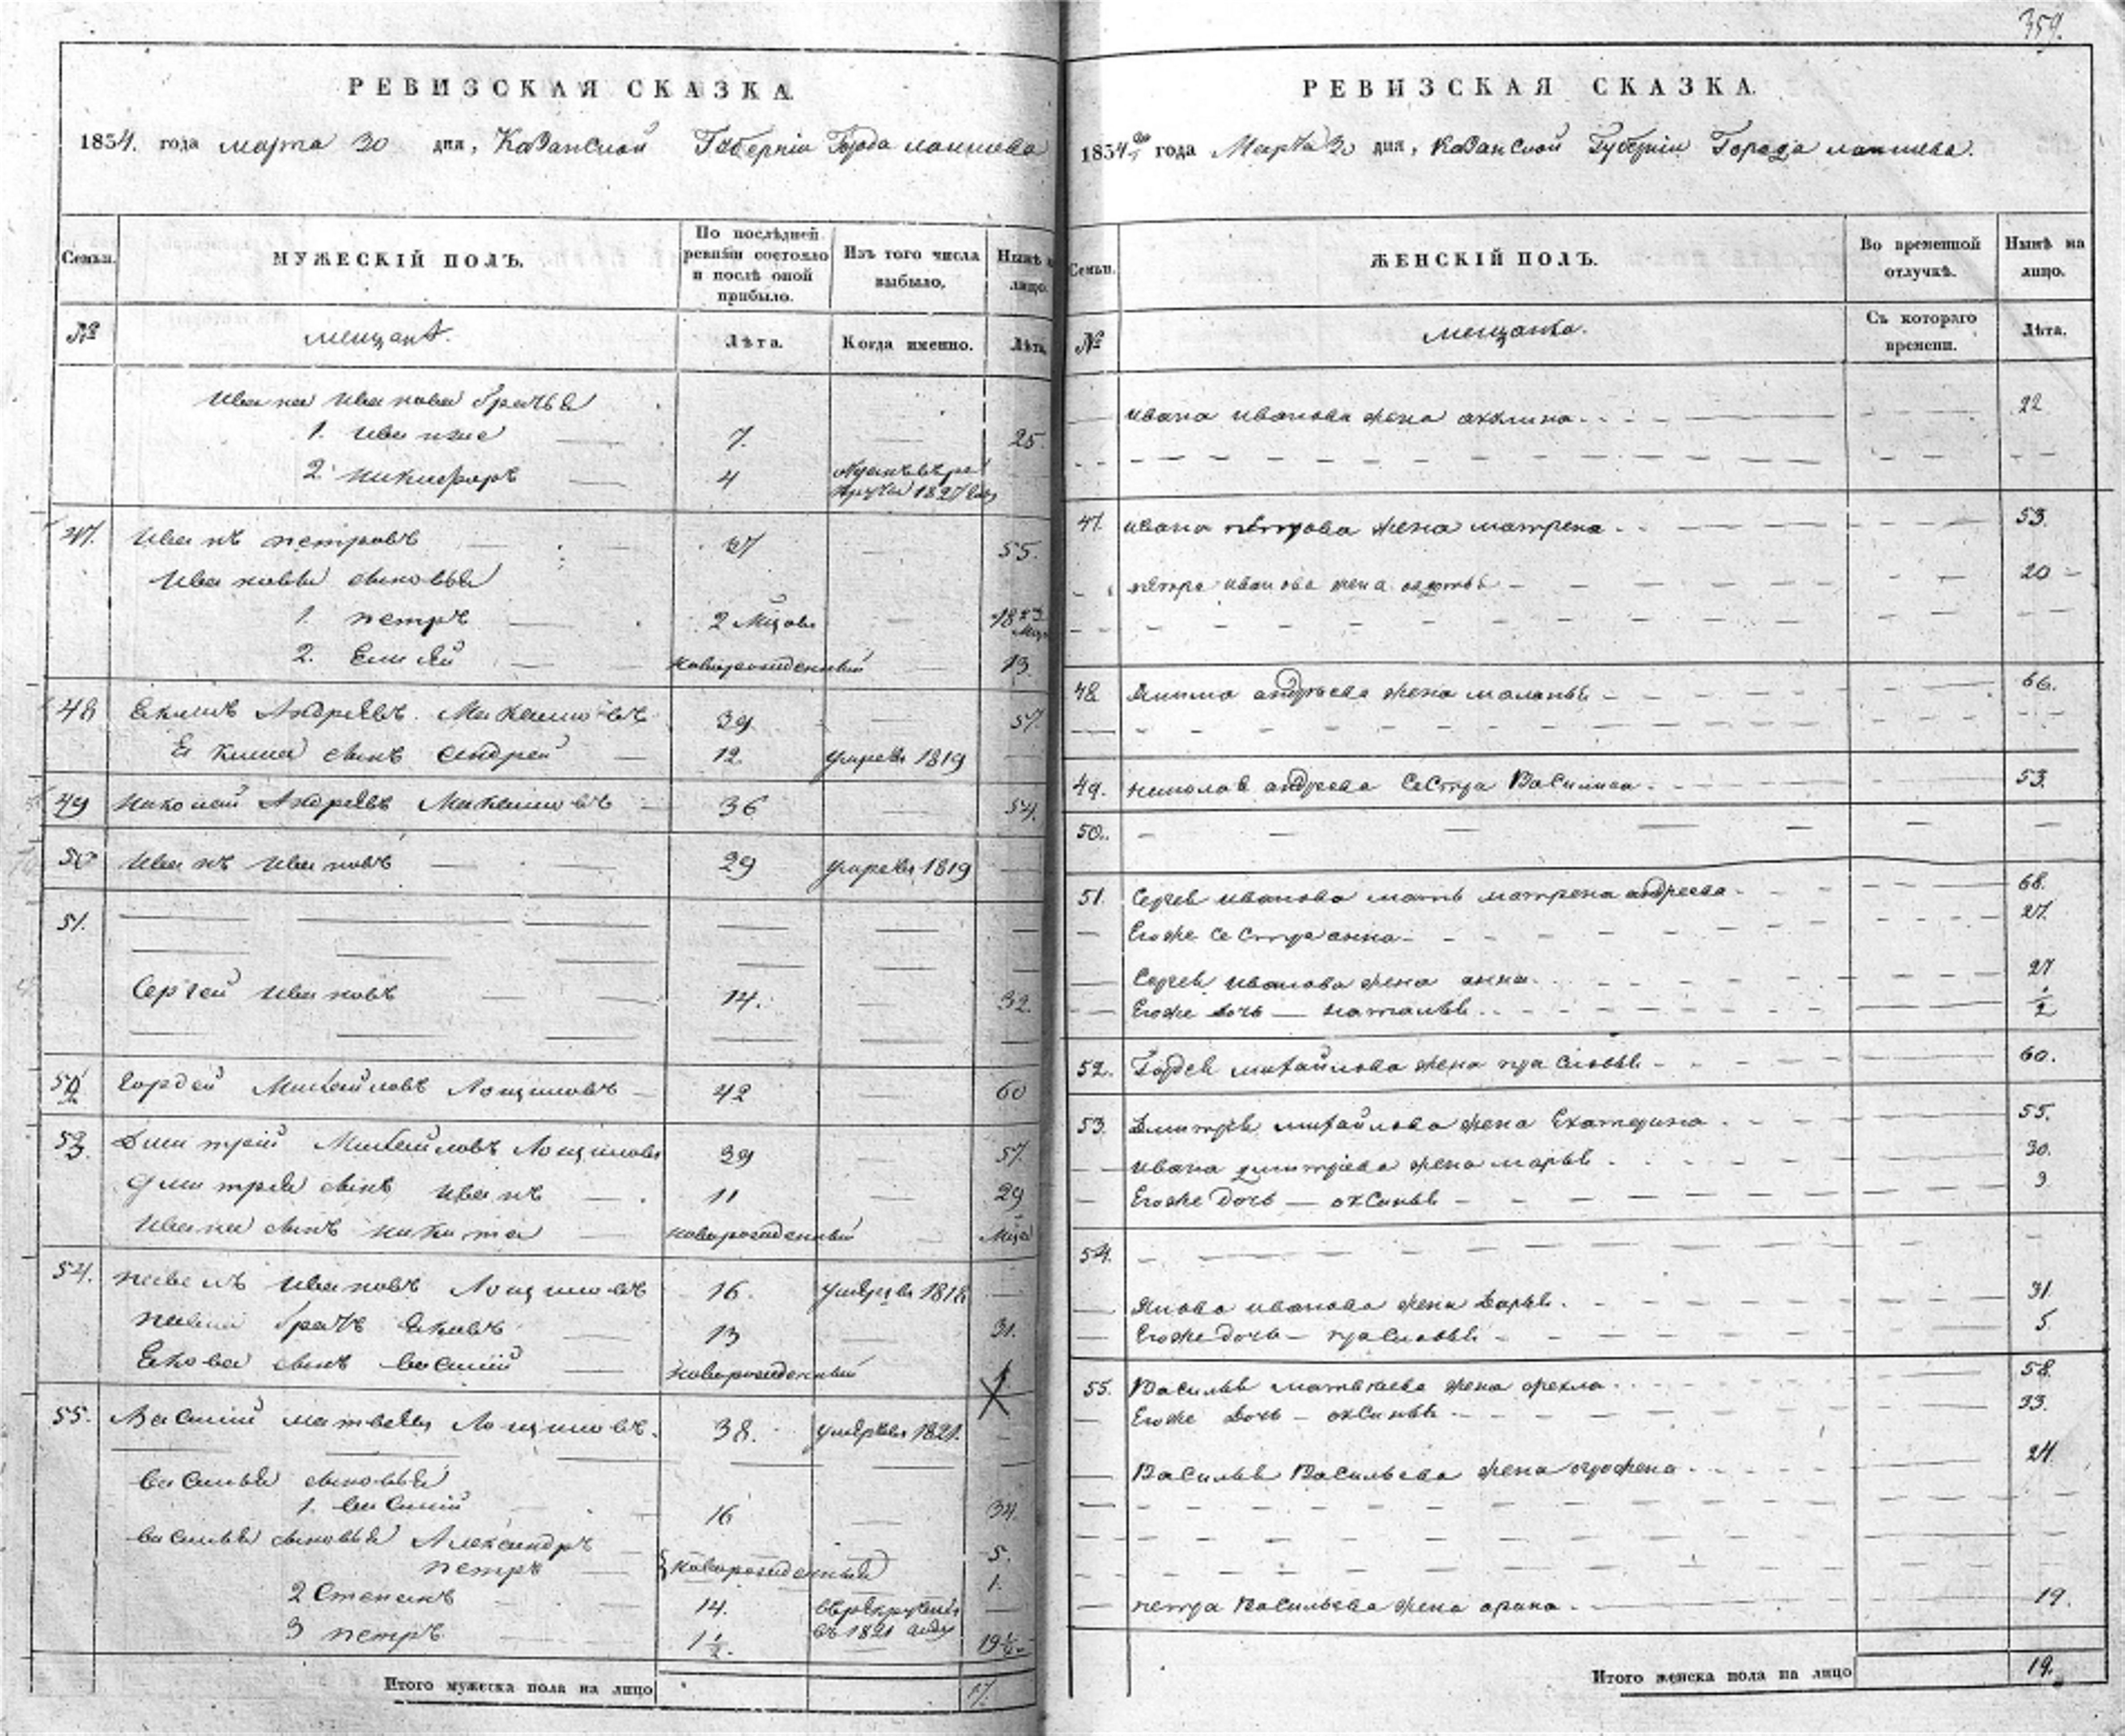 359.
РЕВИЗСКАЯ СКАЗКА.
1834. года марта 30 дня, Казанской Губерніи Города лаишева
Семьи. МУЖЕСКІЙ ПОЛЪ. По послѣдней ревизіи состояло и послѣ оной прибыло. Изъ того числа выбыло. Нынѣ на лицо.
№ мещане. Лѣта. Когда именно. Лѣта.
Ивана Иванова братья
1. Иванже 7. 25.
2 никифоръ 4 1827
47. Иванъ петровъ 37 55.
Ивановы сыновья
1. петръ 2 18
2. новорожденный 13
48 Андреевъ 39 57.
сынъ Андрей 12. умре въ 1819
49 николай Андреевъ 36 54.
50 Иванъ Ивановъ 29 умре въ 1819
51.
Сергей Ивановъ 14. 32.
52 Гордей Михайловъ Лощиловъ 42 60
53. Дмитрий Михайловъ Лощиловъ 39 57.
Дмитрея сынъ Иванъ 11 29
Ивана сынъ никита новорожденный
54. павелъ Ивановъ Лощиловъ 16. умре въ 1818
братъ 13 31.
сынъ василий новорожденный
55. Василий матвеевъ Лощиловъ. 38. умре въ 1821.
василья сыновья
1. василий 16 34.
василья сыновья Александръ 5.
петръ новорожденныя 1.
2 Степанъ 14. въ 1821 году
3 петръ 1 1/2. 19 1/2
Итого мужеска пола на лицо 17.
РЕВИЗСКАЯ СКАЗКА.
1834 года Марта 30 дня, Казанской Губерніи Города лаишева.
Семьи. ЖЕНСКІЙ ПОЛЪ. Во временной отлучкѣ. Нынѣ на лицо.
№ мещанка. Съ котораго времени. Лѣта.
ивана иванова жена акулина 22
47. ивана петрова жена матрена 53.
петра иванова жена 20
48 андрѣева жена маланья 66.
49. николая андреева сестра Василиса 53.
50.
51. Сергея иванова мать матрена андреева 68.
Егоже сестра анна 27.
Сергея иванова жена анна 27
Егоже дочь наталья 1/2
52. Гордея михайлова жена прасковья 60.
53. Дмитрея михайлова жена Екатерина 55.
ивана дмитрiева жена марья 30.
Егоже дочь оксинья 3
54.
Якова иванова жена дарья 31.
Егоже дочь прасковья 5
55. Василья матвѣева жена фекла 58.
Егоже дочь оксинья 33.
Василья Васильева жена 24.
петра Васильева жена арина 19.
Итого женска пола на лицо 19.